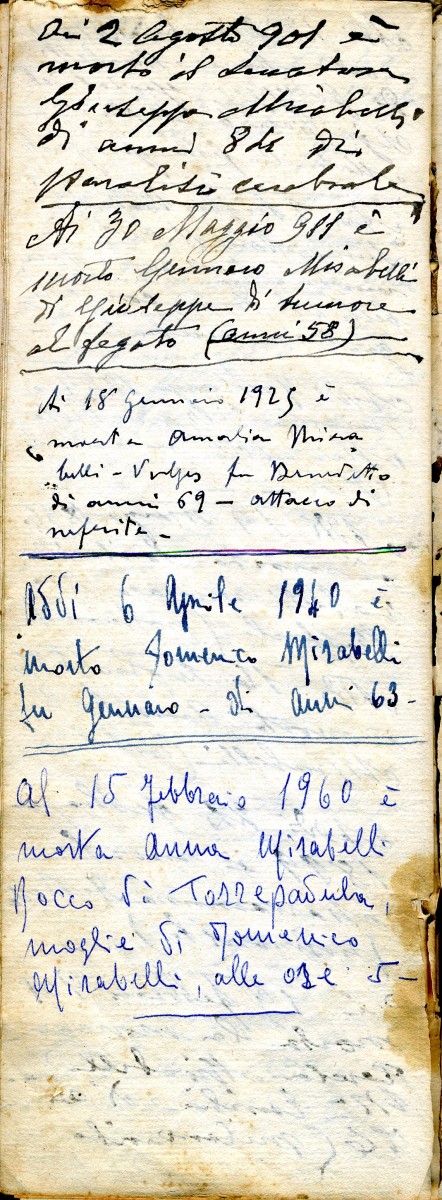 Ai 2 Agosto 901 è
morto il Senatore
Giuseppe Mirabelli
di anni 84 di
paralisi cerebrale
Ai 30 Maggio 911 è
morto Gennaro Mirabelli
di Giuseppe di tumore
al fegato (anni 58)
Ai 18 Gennaio 1925 è
morta Amalia Mira
belli - Vulpes fu Benedetto
di anni 69 - attacco di
nefrite -
Addì 6 Aprile 1940 è
morto Domenico Mirabelli
fu Gennaro - di anni 63 -
Al 15 Febbraio 1960 è
morta Anna Mirabelli
Rocco di Torrepadula,
moglie di Domenico
Mirabelli, alle ore 5 -